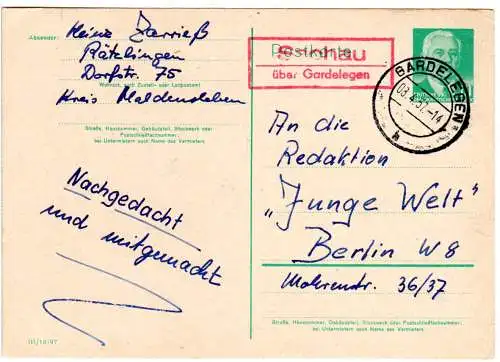 Absender: Heinz Zarrieß
Rätzlingen
Dorfstr. 75
Wohnort, auch Zustell- oder Leitpostamt
Kreis Haldensleben
Straße, Hausnummer, Gebäudeteil, Stockwerk oder Postschließfachnummer,
bei Untermietern auch Name des Vermieters
Nachgedacht
und mitgemacht
III/18/97
Postkarte
über Gardelegen
GARDELEGEN
An die
Redaktion
„Junge Welt"
Berlin W 8
Mohrenstr. 36/37
Straße, Hausnummer, Gebäudeteil, Stockwerk oder Postschließfachnummer,
bei Untermietern auch Name des Vermieters